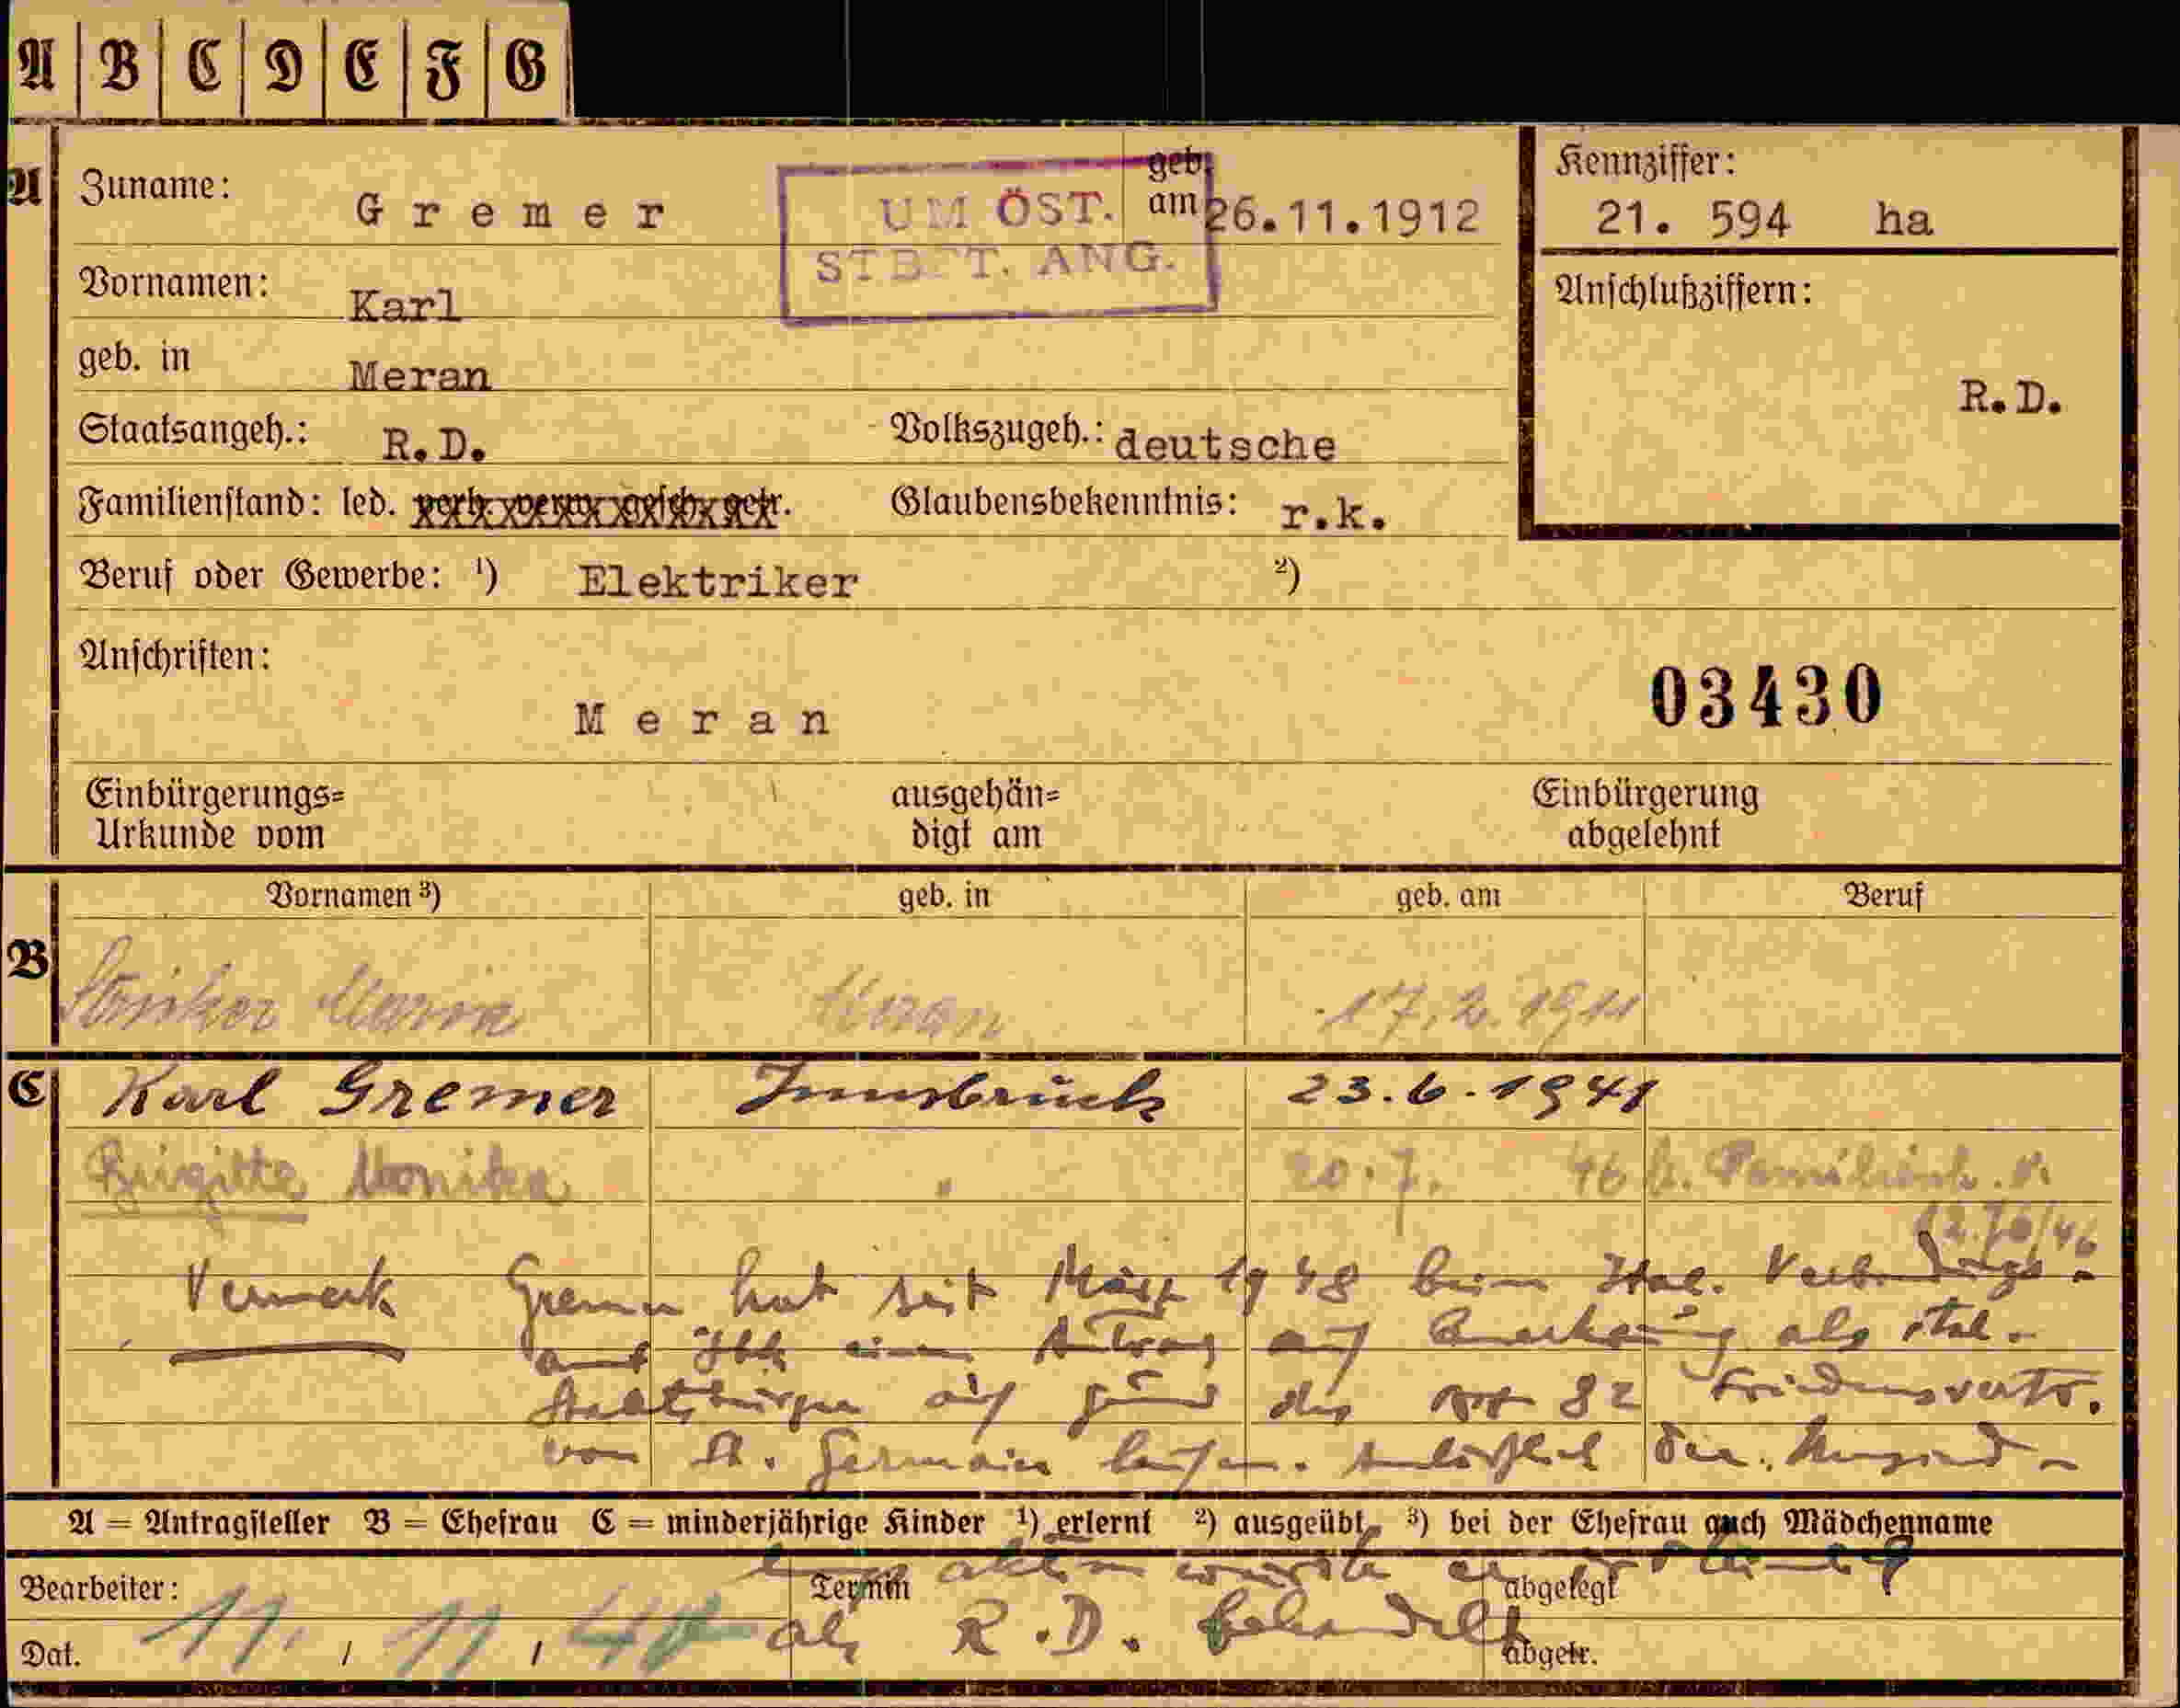 A B C D E F G
A Zuname: Gremer geb. am 26.11.1912 Kennziffer: 21. 594 ha
UM ÖST.
STBFT. ANG.
Vornamen: Karl Anschlußziffern:
geb. in Meran
R.D.
Staatsangeh.: R.D. Volkszugeh.: deutsche
Familienstand: led. verh. verw. gesch. getr. Glaubensbekenntnis: r.k.
Beruf oder Gewerbe: ¹) Elektriker ²)
Anschriften:
Meran 03430
Einbürgerungs= ausgehän= Einbürgerung
Urkunde vom digt am abgelehnt
Vornamen ³) geb. in geb. am Beruf
B Maria Meran 17.2.1911
C Karl Gremer Innsbruck 23.6.1941
Brigitte Monika " 20.7. 46
Vermerk Gremer hat seit März 1948 beim Ital.
amt Ibk einen Antrag auf Anerkennung als ital.
Staatsbürger auf Grund des Art 82 Friedensvertr.
von St. Germain laufen. Anlässlich der
A = Antragsteller B = Ehefrau C = minderjährige Kinder ¹) erlernt ²) ausgeübt ³) bei der Ehefrau auch Mädchenname
aktion wurde er
Bearbeiter: Termin abgelegt
als R.D. behandelt
Dat. 11. / 11 / 48 abgetr.